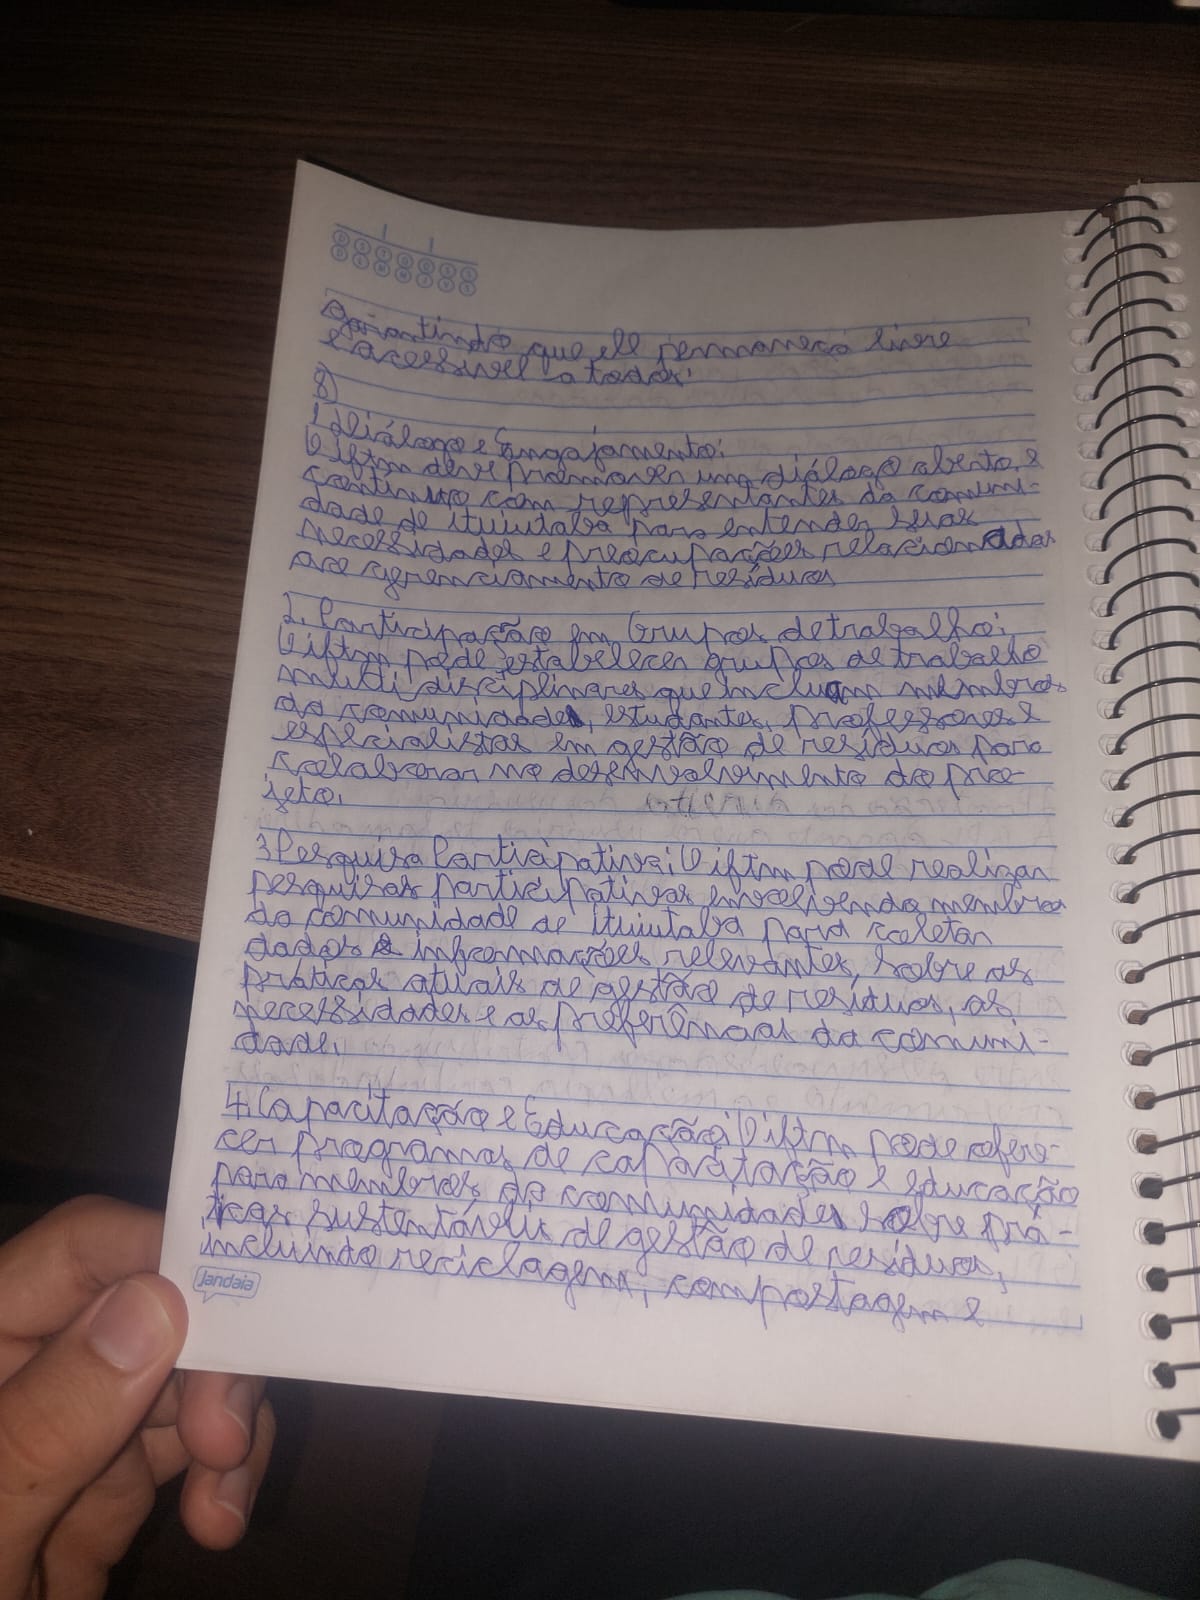 D S T Q Q S S
D L M M J V S
garantindo que ele permaneça livre
e acessivel a todos.
8)
1 Diálogo e Engajamento:
O iftm deve promover um diálogo aberto e
continuo com representantes da comuni-
dade de ituiutaba para entender suas
necessidades e preocupações relacionadas
ao gerenciamento de resíduos
2. Participação em Grupos de trabalho:
O iftm pode estabelecer grupos de trabalho
multidisciplinares que incluam membros
da comunidade, estudantes, professores e
especialistas em gestão de resíduos para
colaborar no desenvolvimento do pro-
jeto.
3 Pesquisa Participativa: O iftm pode realizar
pesquisas participativas envolvendo membros
da comunidade de ituiutaba para coletar
dados e informações relevantes, sobre as
práticas atuais de gestão de resíduos, as
necessidades e as preferências da comuni-
dade.
4. Capacitação e Educação: O iftm pode ofere-
cer programas de capacitação e educação
para membros da comunidade sobre prá-
ticas sustentáveis de gestão de resíduos,
incluindo reciclagem, compostagem e
jandaia